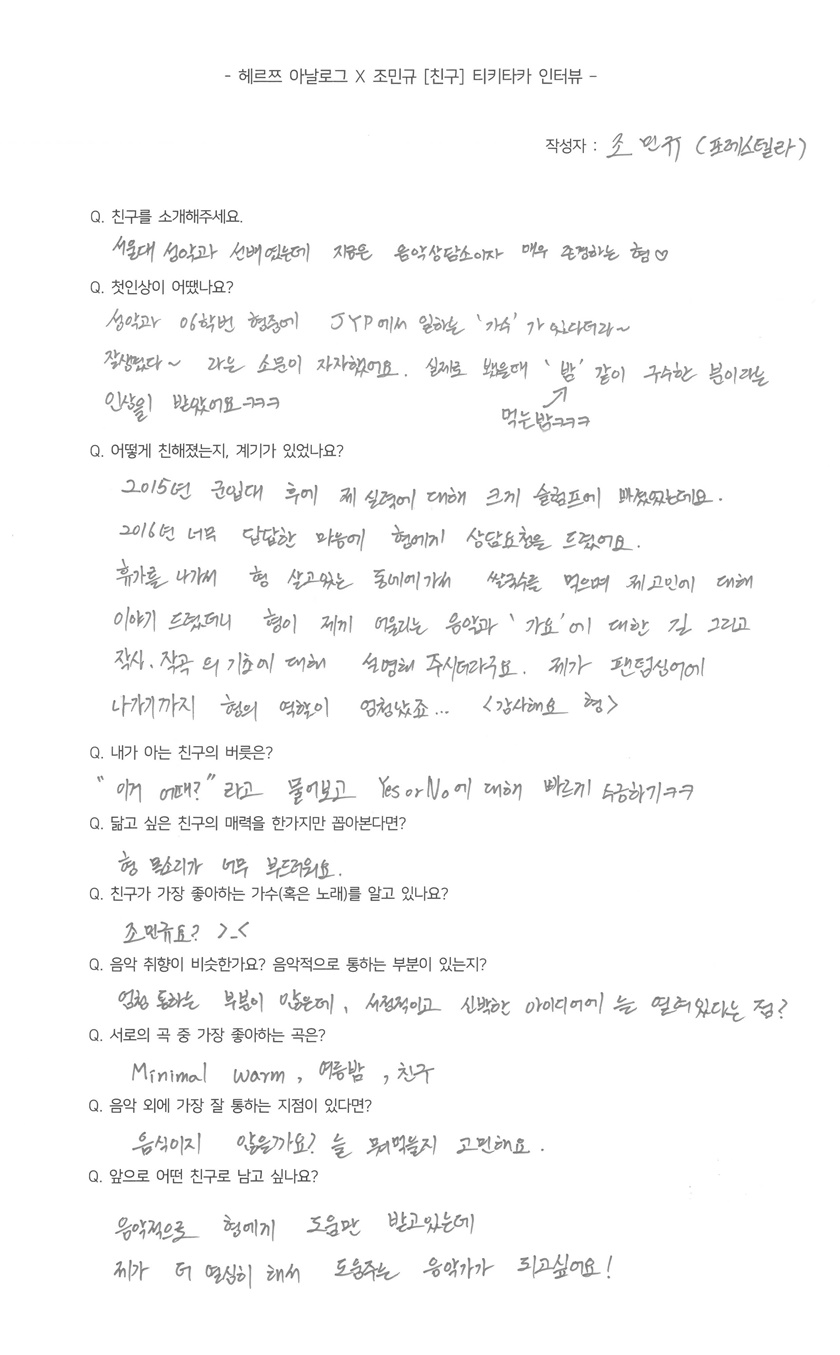 - 헤르쯔 아날로그 X 조민규 [친구] 티키타카 인터뷰 -
작성자 : 조민규 (포레스텔라)
Q. 친구를 소개해주세요.
서울대 성악과 선배였는데 지금은 음악상담소이자 매우 존경하는 형♡
Q. 첫인상이 어땠나요?
성악과 06학번 형중에 JYP에서 일하는 '가수'가 있다더라~
잘생겼다~ 라는 소문이 자자했어요. 실제로 봤을때 '밤' 같이 구수한 분이라는
인상을 받았어요ㅋㅋㅋ
먹는밤ㅋㅋㅋ
Q. 어떻게 친해졌는지, 계기가 있었나요?
2015년 군입대 후에 제 실력에 대해 크게 슬럼프에 빠졌었는데요.
2016년 너무 답답한 마음에 형에게 상담요청을 드렸어요.
휴가를 나가서 형 살고있는 동네에가서 쌀국수를 먹으며 제고민에 대해
이야기 드렸더니 형이 제게 어울리는 음악과 '가요'에 대한 길 그리고
작사.작곡의 기초에 대해 설명해 주시더라구요. 제가 팬텀싱어에
나가기까지 형의 역할이 엄청났죠... <감사해요 형>
Q. 내가 아는 친구의 버릇은?
"이거 어때?"라고 물어보고 Yes or No에 대해 빠르게 수긍하기ㅋㅋ
Q. 닮고 싶은 친구의 매력을 한가지만 꼽아본다면?
형 목소리가 너무 부드러워요.
Q. 친구가 가장 좋아하는 가수(혹은 노래)를 알고 있나요?
조민규요? >_<
Q. 음악 취향이 비슷한가요? 음악적으로 통하는 부분이 있는지?
엄청 통하는 부분이 많은데, 서정적이고 신박한 아이디어에 늘 열려있다는 점?
Q. 서로의 곡 중 가장 좋아하는 곡은?
Minimal warm, 여름밤, 친구
Q. 음악 외에 가장 잘 통하는 지점이 있다면?
음식이지 않을까요? 늘 뭐먹을지 고민해요.
Q. 앞으로 어떤 친구로 남고 싶나요?
음악적으로 형에게 도움만 받고있는데
제가 더 열심히 해서 도움주는 음악가가 되고싶어요!